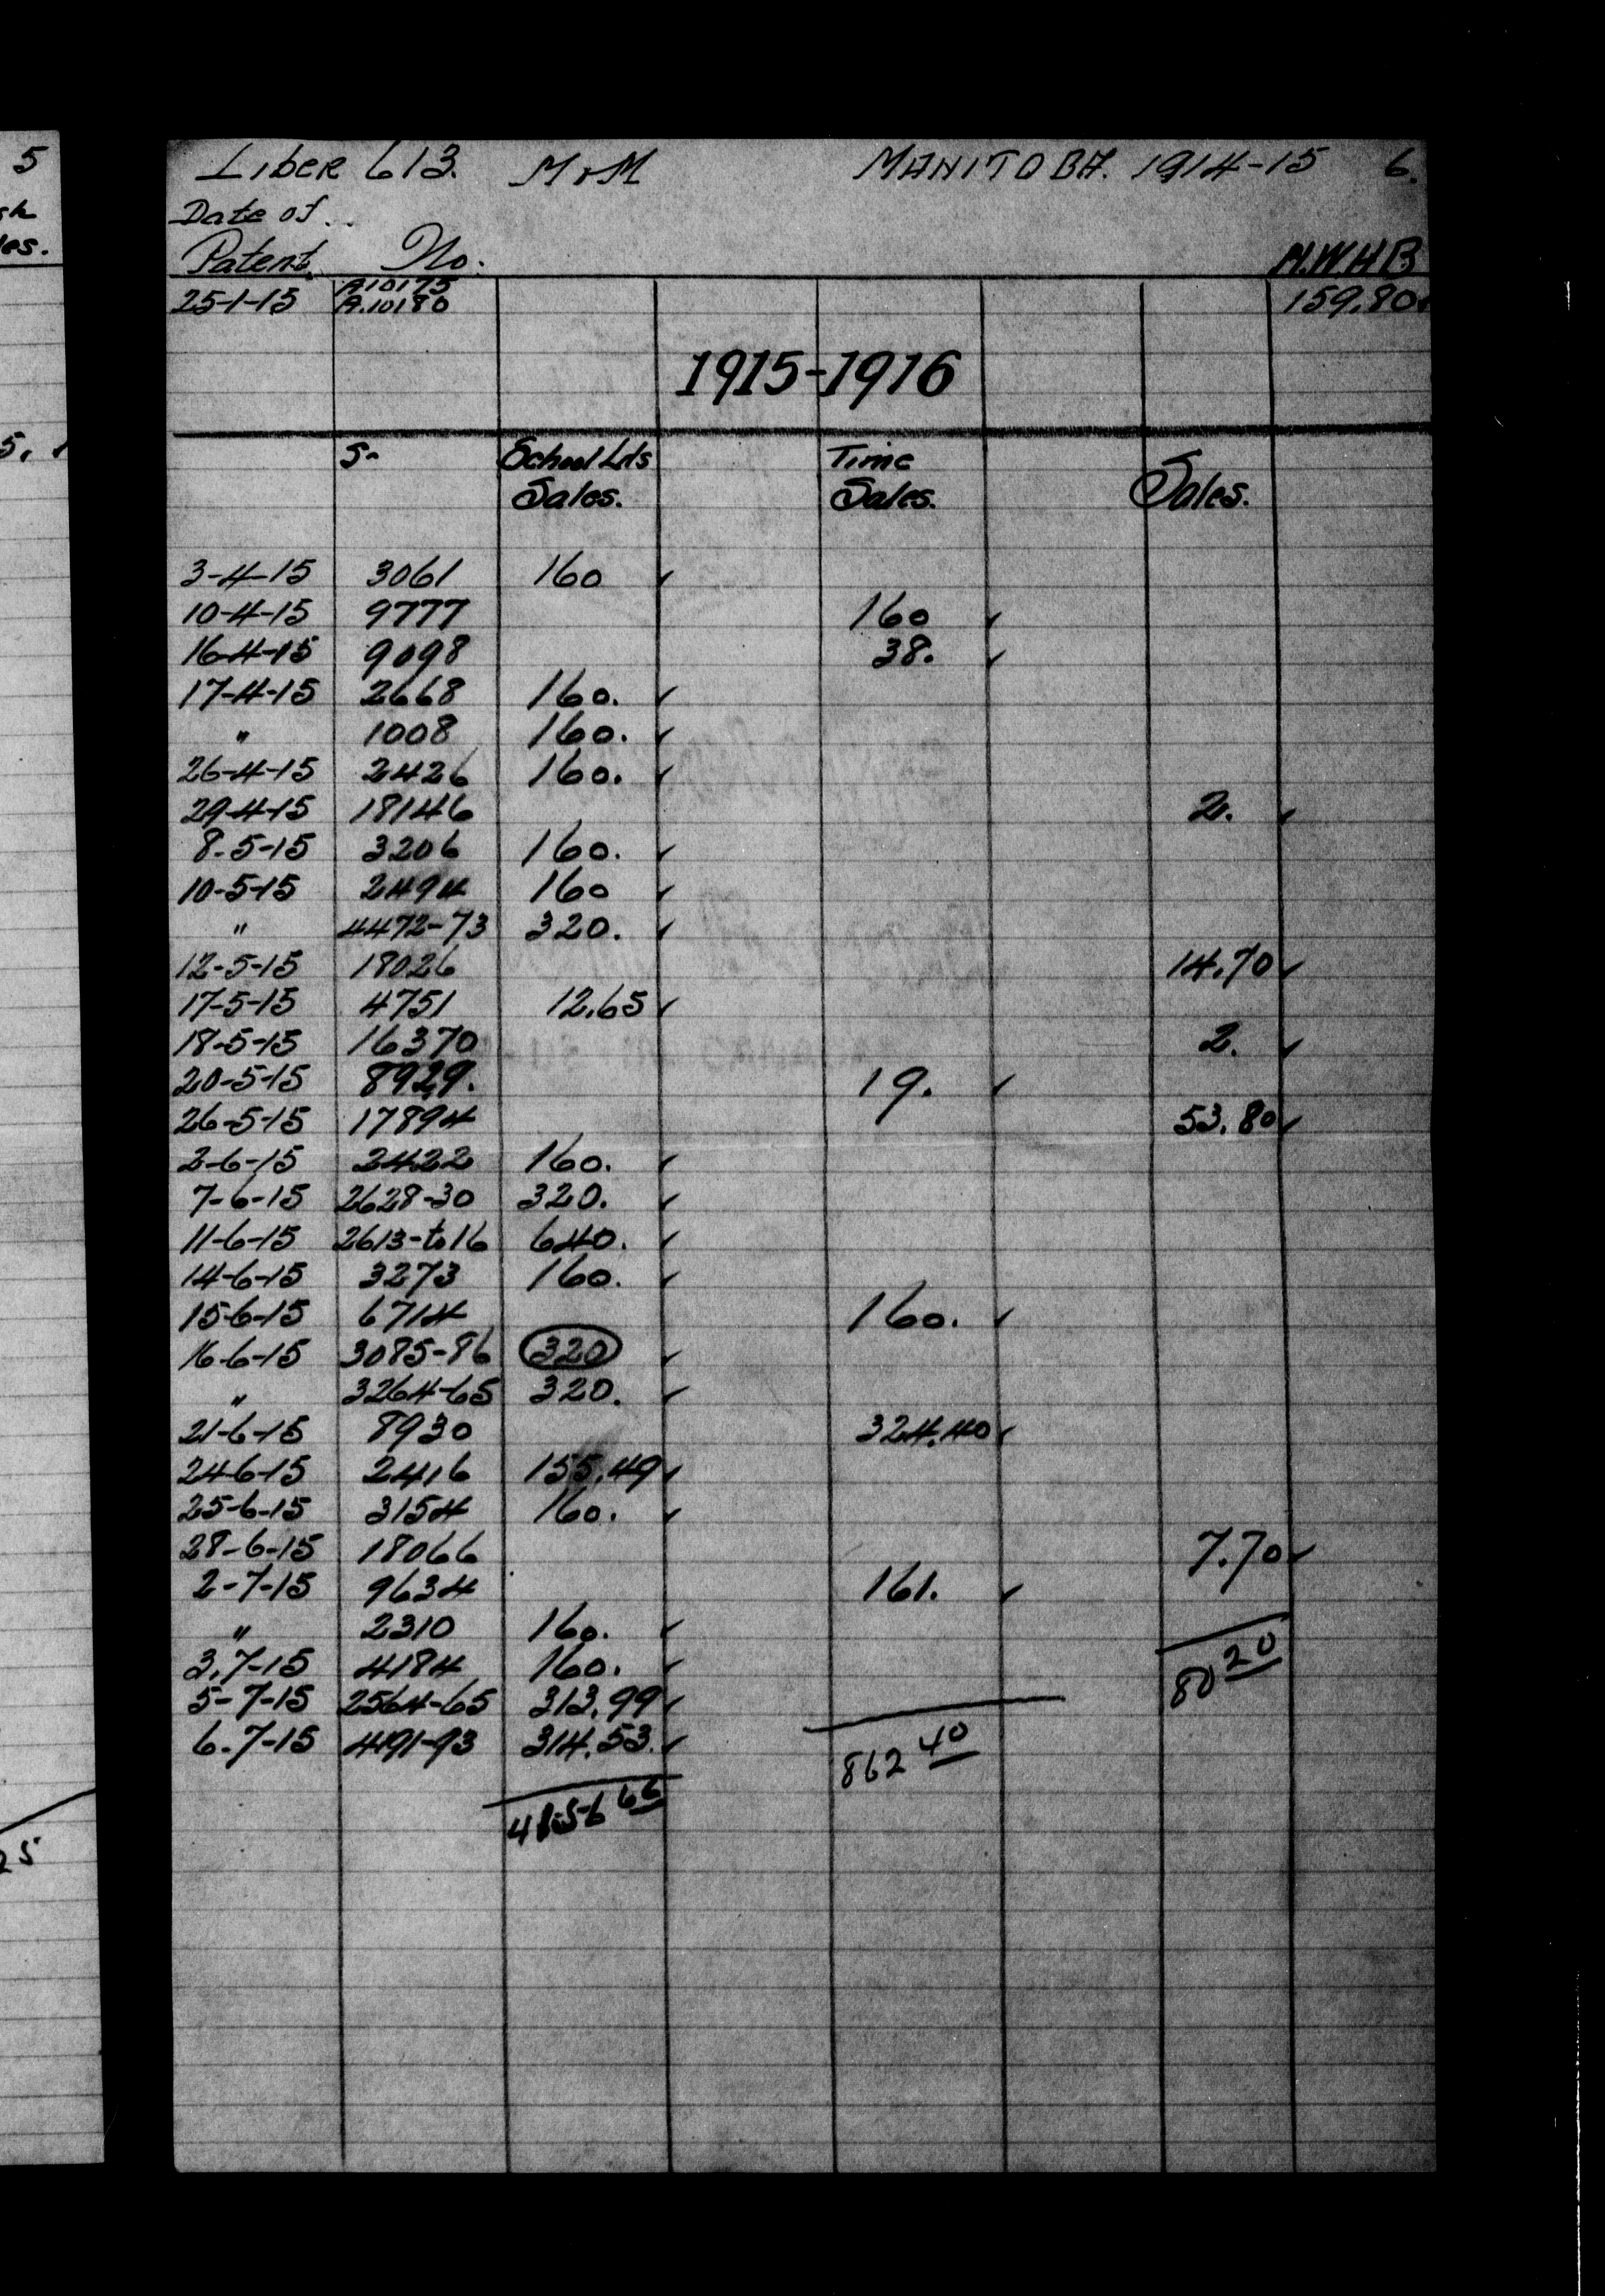 5
sh
les.
5.
25
Liber 613. MoM MANITOBA. 1914-15 6.
Date of
Patent No. M.W.H.B
A10175
25-1-15 A.10180 159.80
1915-1916
S- School Lds Time
Sales. Sales. Sales.
3-4-15 3061 160 ✓
10-4-15 9777 160 ✓
16-4-15 9098 38. ✓
17-4-15 2668 160. ✓
" 1008 160. ✓
26-4-15 2426 160. ✓
29-4-15 18146 2. ✓
8-5-15 3206 160. ✓
10-5-15 2494 160 ✓
" 4472-73 320. ✓
12-5-15 18026 14.70 ✓
17-5-15 4751 12.65 ✓
18-5-15 16370 2. ✓
20-5-15 8929. 19. ✓
26-5-15 17894 53.80 ✓
2-6-15 2422 160. ✓
7-6-15 2628-30 320. ✓
11-6-15 2613-to 16 640. ✓
14-6-15 3273 160. ✓
15-6-15 6714 160. ✓
16-6-15 3085-86 320 ✓
" 3264-65 320. ✓
21-6-15 8930 324.40 ✓
24-6-15 2416 155.49 ✓
25-6-15 3154 160. ✓
28-6-15 18066 7.70 ✓
2-7-15 9634 161. ✓
" 2310 160. ✓
3.7-15 4184 160. ✓
5-7-15 2564-65 313.99 ✓
6.7-15 4191-93 314.53. ✓
80 20
862 40
4556 66